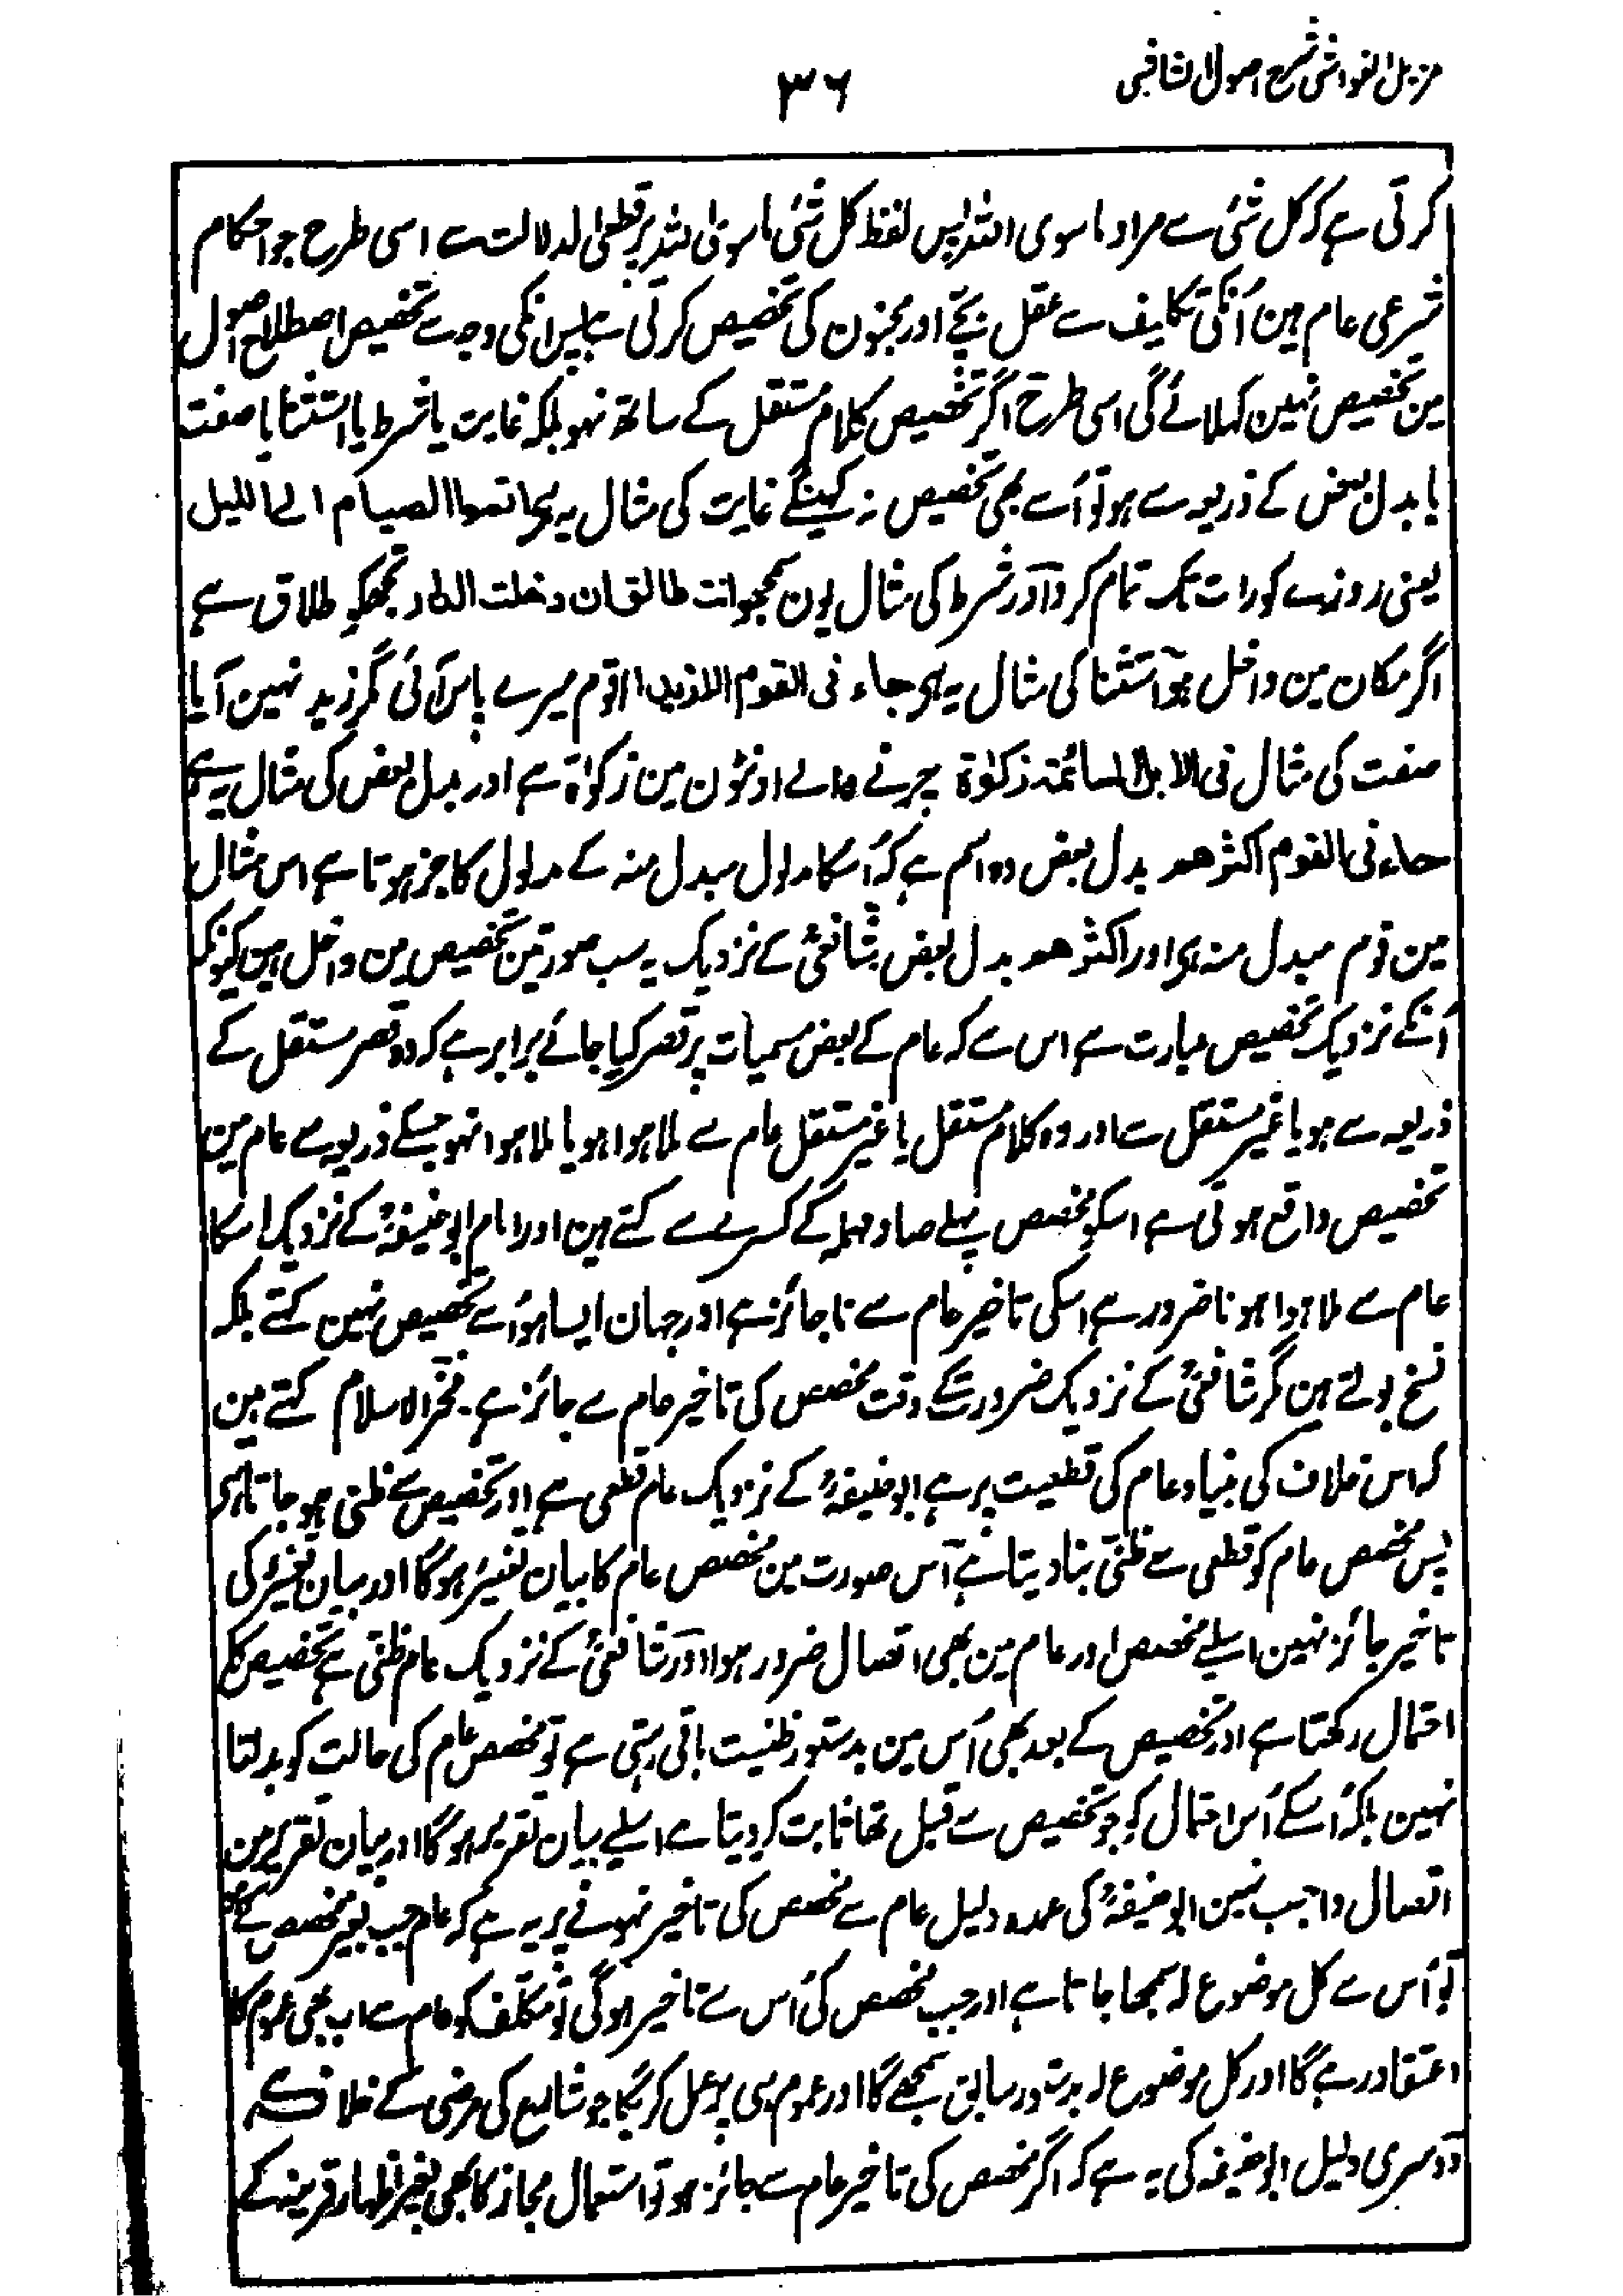 مزیل الغواشی شرح اصول الشاشی
۳۶
کرتی ہے کہ کل شئ سے مراد ماسوی اللہ ہے پس لفظ کل شئ ماسوی اللہ پر قطعی الدلالت ہے اسی طرح جو احکام
شرعی عام ہین اُنکی تکلیف سے عقل بچے اور مجنون کی تخصیص کرتی ہے پس انکی وجہ سے تخصیص اصطلاح اصول
مین تخصیص نہین کہلائے گی اسی طرح اگر تخصیص کلام مستقل کے ساتھ نہو بلکہ غایت یا شرط یا استثنا یا صفت
یا بدل بعض کے ذریعہ سے ہو تو اُسے بھی تخصیص نہ کہینگے غایت کی مثال یہ ہی اتموا الصیام الی اللیل
یعنی روزے کو رات تک تمام کرو اور شرط کی مثال یون سمجھو انت طالق ان دخلت الدار تجھکو طلاق ہے
اگر مکان مین داخل ہو استثنا کی مثال یہ ہی جاءنی القوم الا زید ا قوم میرے پاس آئی مگر زید نہین آیا
صفت کی مثال فی الابل السائمۃ زکوٰۃ چرنے والے اونٹون مین زکوٰۃ ہے اور بدل بعض کی مثال یہ ہی
جاءنی القوم اکثرھم بدل بعض وہ اسم ہے کہ اُسکا مدلول مبدل منہ کے مدلول کا جز ہوتا ہے اس مثال
مین قوم مبدل منہ ہی اور اکثرھم بدل بعض شافعیؒ کے نزدیک یہ سب صورتین تخصیص مین داخل ہین کیونکہ
اُنکے نزدیک تخصیص عبارت ہے اس سے کہ عام کے بعض مسمیات پر قصر کیا جائے برابر ہے کہ وہ قصر مستقل کے
ذریعہ سے ہو یا غیر مستقل سے اور وہ کلام مستقل یا غیر مستقل عام سے ملا ہوا ہو یا ملا ہوا نہو جسکے ذریعہ سے عام مین
تخصیص واقع ہوتی ہے اسکو مخصص پہلے صاد مہملہ کے کسرے سے کہتے ہین اور امام ابو حنیفہؒ کے نزدیک اسکا
عام سے ملا ہوا ہونا ضرور ہے اسکی تاخیر عام سے ناجائز ہے اور جہان ایسا ہو اُسے تخصیص نہین کہتے بلکہ
نسخ بولتے ہین مگر شافعیؒ کے نزدیک ضرورت کے وقت مخصص کی تاخیر عام سے جائز ہے۔ فخر الاسلام کہتے ہین
کہ اس خلاف کی بنیاد عام کی قطعیت پر ہے ابو حنیفہؒ کے نزدیک عام قطعی ہے اور تخصیص سے ظنی ہو جاتا ہی
پس مخصص عام کو قطعی سے ظنی بنا دیتا ہے اس صورت مین مخصص عام کا بیان تغیر ہو گا اور بیان تغیر کی
تاخیر جائز نہین اسلیے مخصص اور عام مین بھی اتصال ضرور ہوا اور شافعیؒ کے نزدیک عام ظنی ہے تخصیص کا
احتمال رکھتا ہے اور تخصیص کے بعد بھی اُس مین بدستور ظنیت باقی رہتی ہے تو مخصص عام کی حالت کو بدلتا
نہین بلکہ اُسکے اُس احتمال کو جو تخصیص سے قبل تھا ثابت کر دیتا ہے اسلیے بیان تقریر ہو گا اور بیان تقریر مین
اتصال واجب نہین ابو حنیفہؒ کی عمدہ دلیل عام سے مخصص کی تاخیر نہونے پر یہ ہے کہ عام جب بغیر مخصص کے
تو اُس سے کل موضوع لہ سمجھا جاتا ہے اور جب مخصص کی اُس سے تاخیر ہو گی تو مکلف کو عام سے اب بھی عموم کا
اعتقاد رہے گا اور کل موضوع لہ بدستور سابق سمجھے گا اور عموم ہی پر عمل کریگا جو شارع کی مرضی کے خلاف ہے
دوسری دلیل ابو حنیفہ کی یہ ہے کہ اگر مخصص کی تاخیر عام سے جائز ہو تو استعمال مجاز کا بھی بغیر اظہار قرینہ کے